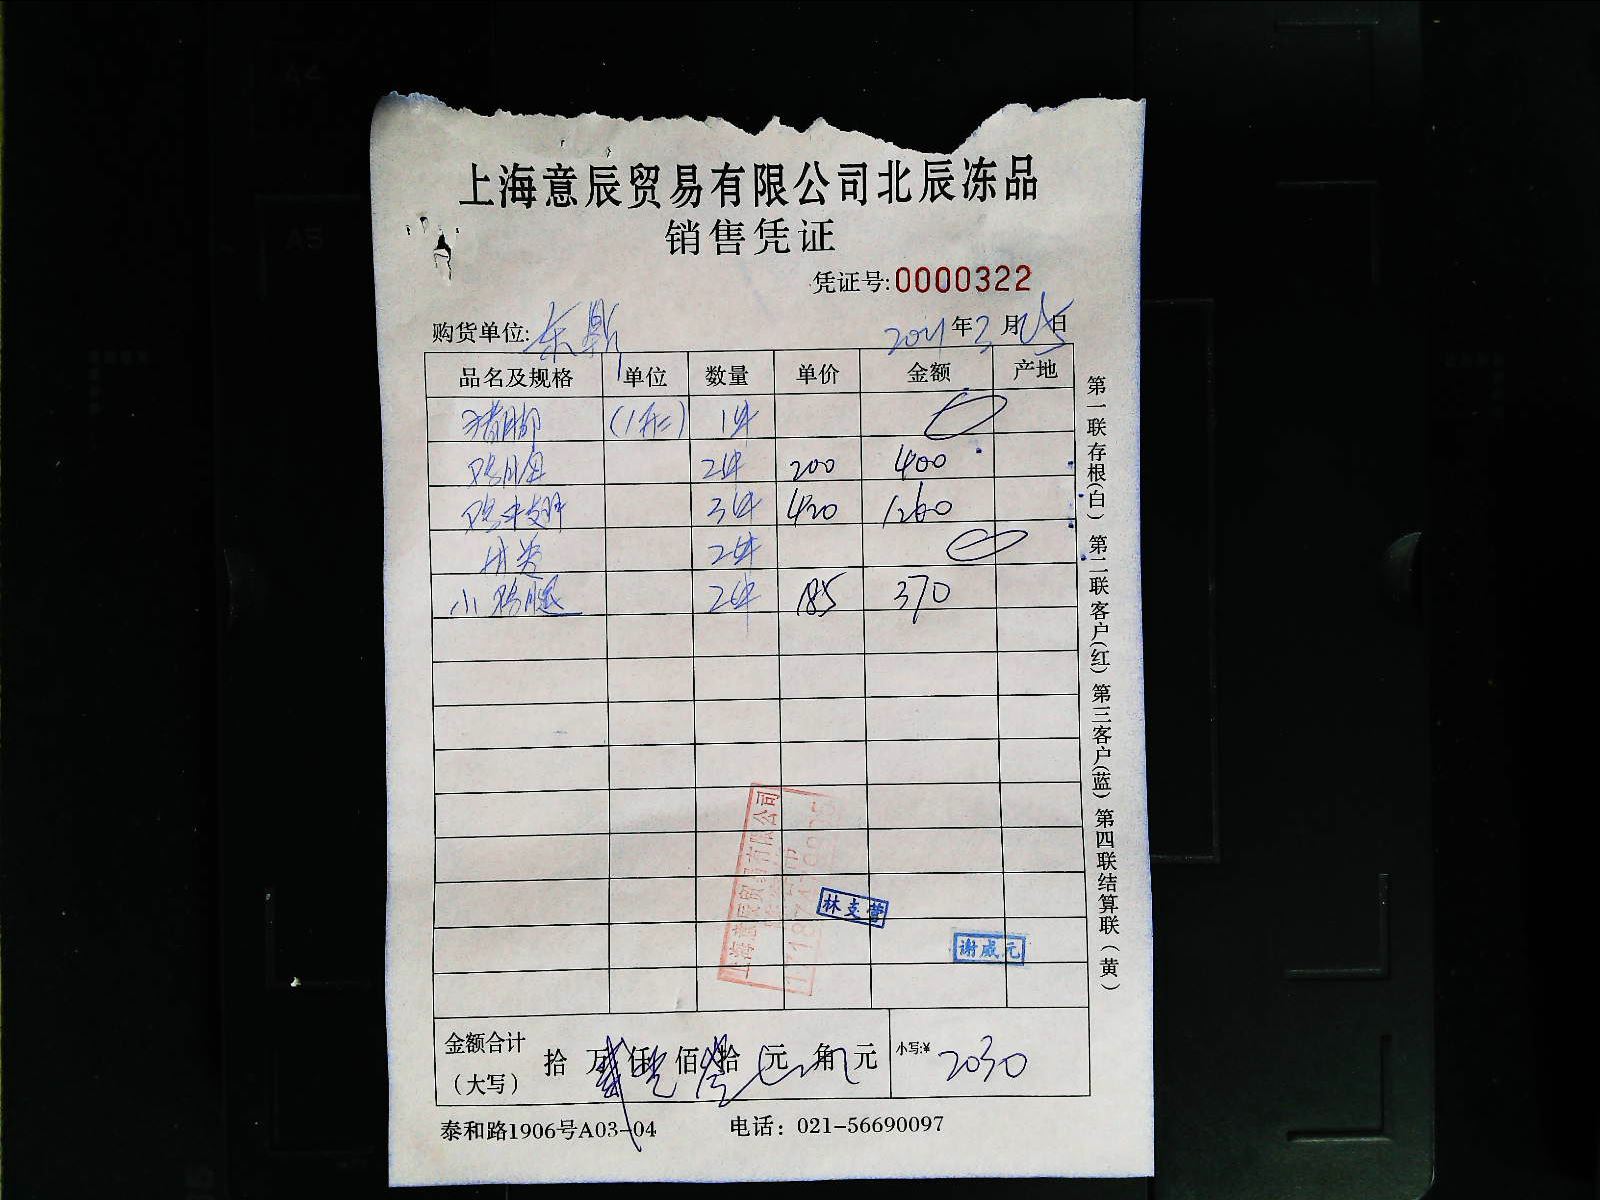 上海意辰贸易有限公司北辰冻品
销售凭证
凭证号:0000322
购货单位: 东鼎 2021年3月25日
品名及规格 单位 数量 单价 金额 产地
猪脚 (1形) 1件
鸡胗 2件 200 400
鸡中翅 3件 420 1260
2件
小鸡腿 2件 185 370
上海意辰贸易有限公司
林支营
谢威元
金额合计(大写) 拾 万 仟 佰 拾 元 角 元 小写:¥ 2030
泰和路1906号A03-04 电话：021-56690097
第一联存根(白) 第二联客户(红) 第三客户(蓝) 第四联结算联(黄)